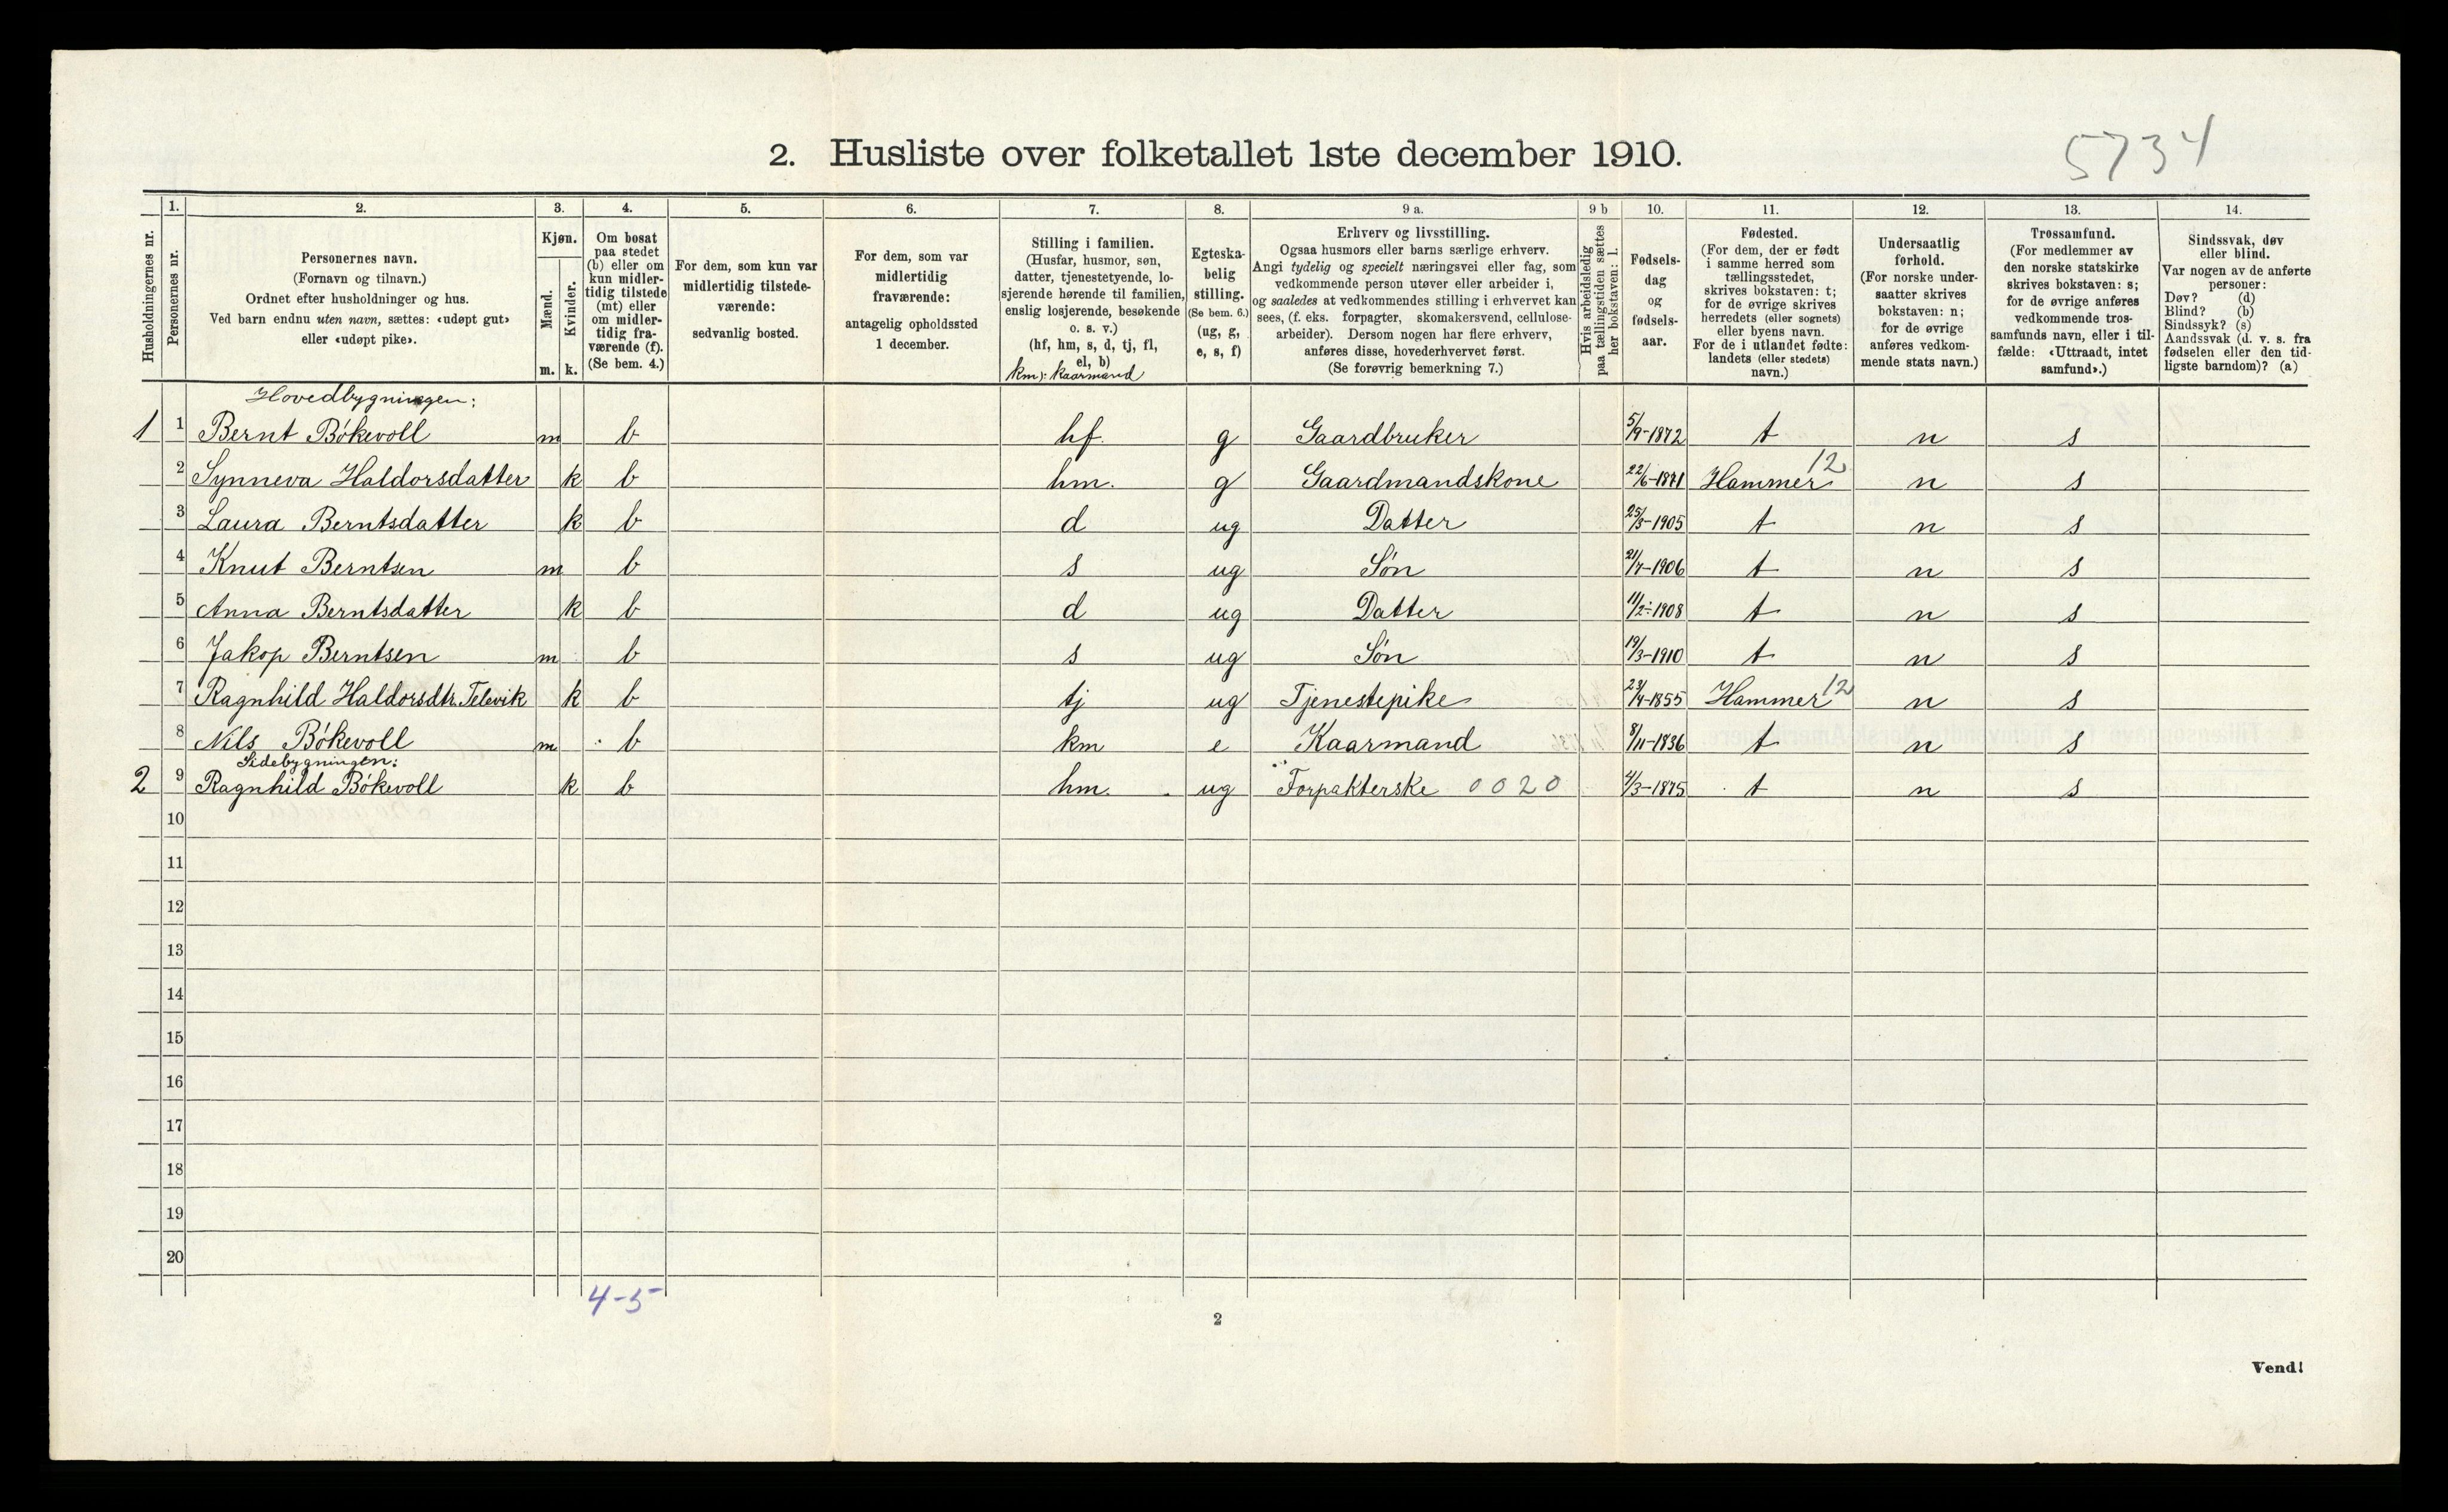 5734
2. Husliste over folketallet 1ste december 1910.
Husholdningernes nr.
1.
Personernes nr.
2.
Personernes navn.
(Fornavn og tilnavn.)
Ordnet efter husholdninger og hus.
Ved barn endnu uten navn, sættes: «udøpt gut»
eller «udøpt pike».
3.
Kjøn.
Mænd.
Kvinder.
m. k.
4.
Om bosat
paa stedet
(b) eller om
kun midler-
tidig tilstede
(mt) eller
om midler-
tidig fra-
værende (f).
(Se bem. 4.)
5.
For dem, som kun var
midlertidig tilstede-
værende:
sedvanlig bosted.
6.
For dem, som var
midlertidig
fraværende:
antagelig opholdssted
1 december.
7.
Stilling i familien.
(Husfar, husmor, søn,
datter, tjenestetyende, lo-
sjerende hørende til familien,
enslig losjerende, besøkende
o. s. v.)
(hf, hm, s, d, tj, fl,
el, b)
km): kaarmand
8.
Egteska-
belig
stilling.
(Se bem. 6.)
(ug, g,
e, s, f)
9 a.
Erhverv og livsstilling.
Ogsaa husmors eller barns særlige erhverv.
Angi tydelig og specielt næringsvei eller fag, som
vedkommende person utøver eller arbeider i,
og saaledes at vedkommendes stilling i erhvervet kan
sees, (f. eks. forpagter, skomakersvend, cellulose-
arbeider). Dersom nogen har flere erhverv,
anføres disse, hovederhvervet først.
(Se forøvrig bemerkning 7.)
9 b
Hvis arbeidsledig
paa tællingstiden sættes
her bokstaven: l.
10.
Fødsels-
dag
og
fødsels-
aar.
11.
Fødested.
(For dem, der er født
i samme herred som
tællingsstedet,
skrives bokstaven: t;
for de øvrige skrives
herredets (eller sognets)
eller byens navn.
For de i utlandet fødte:
landets (eller stedets)
navn.)
12.
Undersaatlig
forhold.
(For norske under-
saatter skrives
bokstaven: n;
for de øvrige
anføres vedkom-
mende stats navn.)
13.
Trossamfund.
(For medlemmer av
den norske statskirke
skrives bokstaven: s;
for de øvrige anføres
vedkommende tros-
samfunds navn, eller i til-
fælde: «Uttraadt, intet
samfund».)
14.
Sindssvak, døv
eller blind.
Var nogen av de anførte
personer:
Døv? (d)
Blind? (b)
Sindssyk? (s)
Aandssvak (d. v. s. fra
fødselen eller den tid-
ligste barndom)? (a)
Hovedbygningen:
1 1 Bernt Bökevoll m b hf. g Gaardbruker 5/9-1872 t n s
2 Synneva Haldorsdatter k b hm. g Gaardmandskone 22/6-1871 Hammer 12 n s
3 Laura Berntsdatter k b d ug Datter 25/3-1905 t n s
4 Knut Berntsen m b s ug Søn 21/7-1906 t n s
5 Anna Berntsdatter k b d ug Datter 11/2-1908 t n s
6 Jakop Berntsen m b s ug Søn 19/3-1910 t n s
7 Ragnhild Haldorsdtr. Televik k b tj ug Tjenestepike 23/4-1855 Hammer 12 n s
8 Nils Bökevoll m b km e Kaarmand 8/11-1836 t n s
Sidebygningen:
2 9 Ragnhild Bökevoll k b hm. ug Forpakterske 0020 4/3-1875 t n s
10
11
12
13
14
15
16
17
18
19
20
4-5
2
Vend!